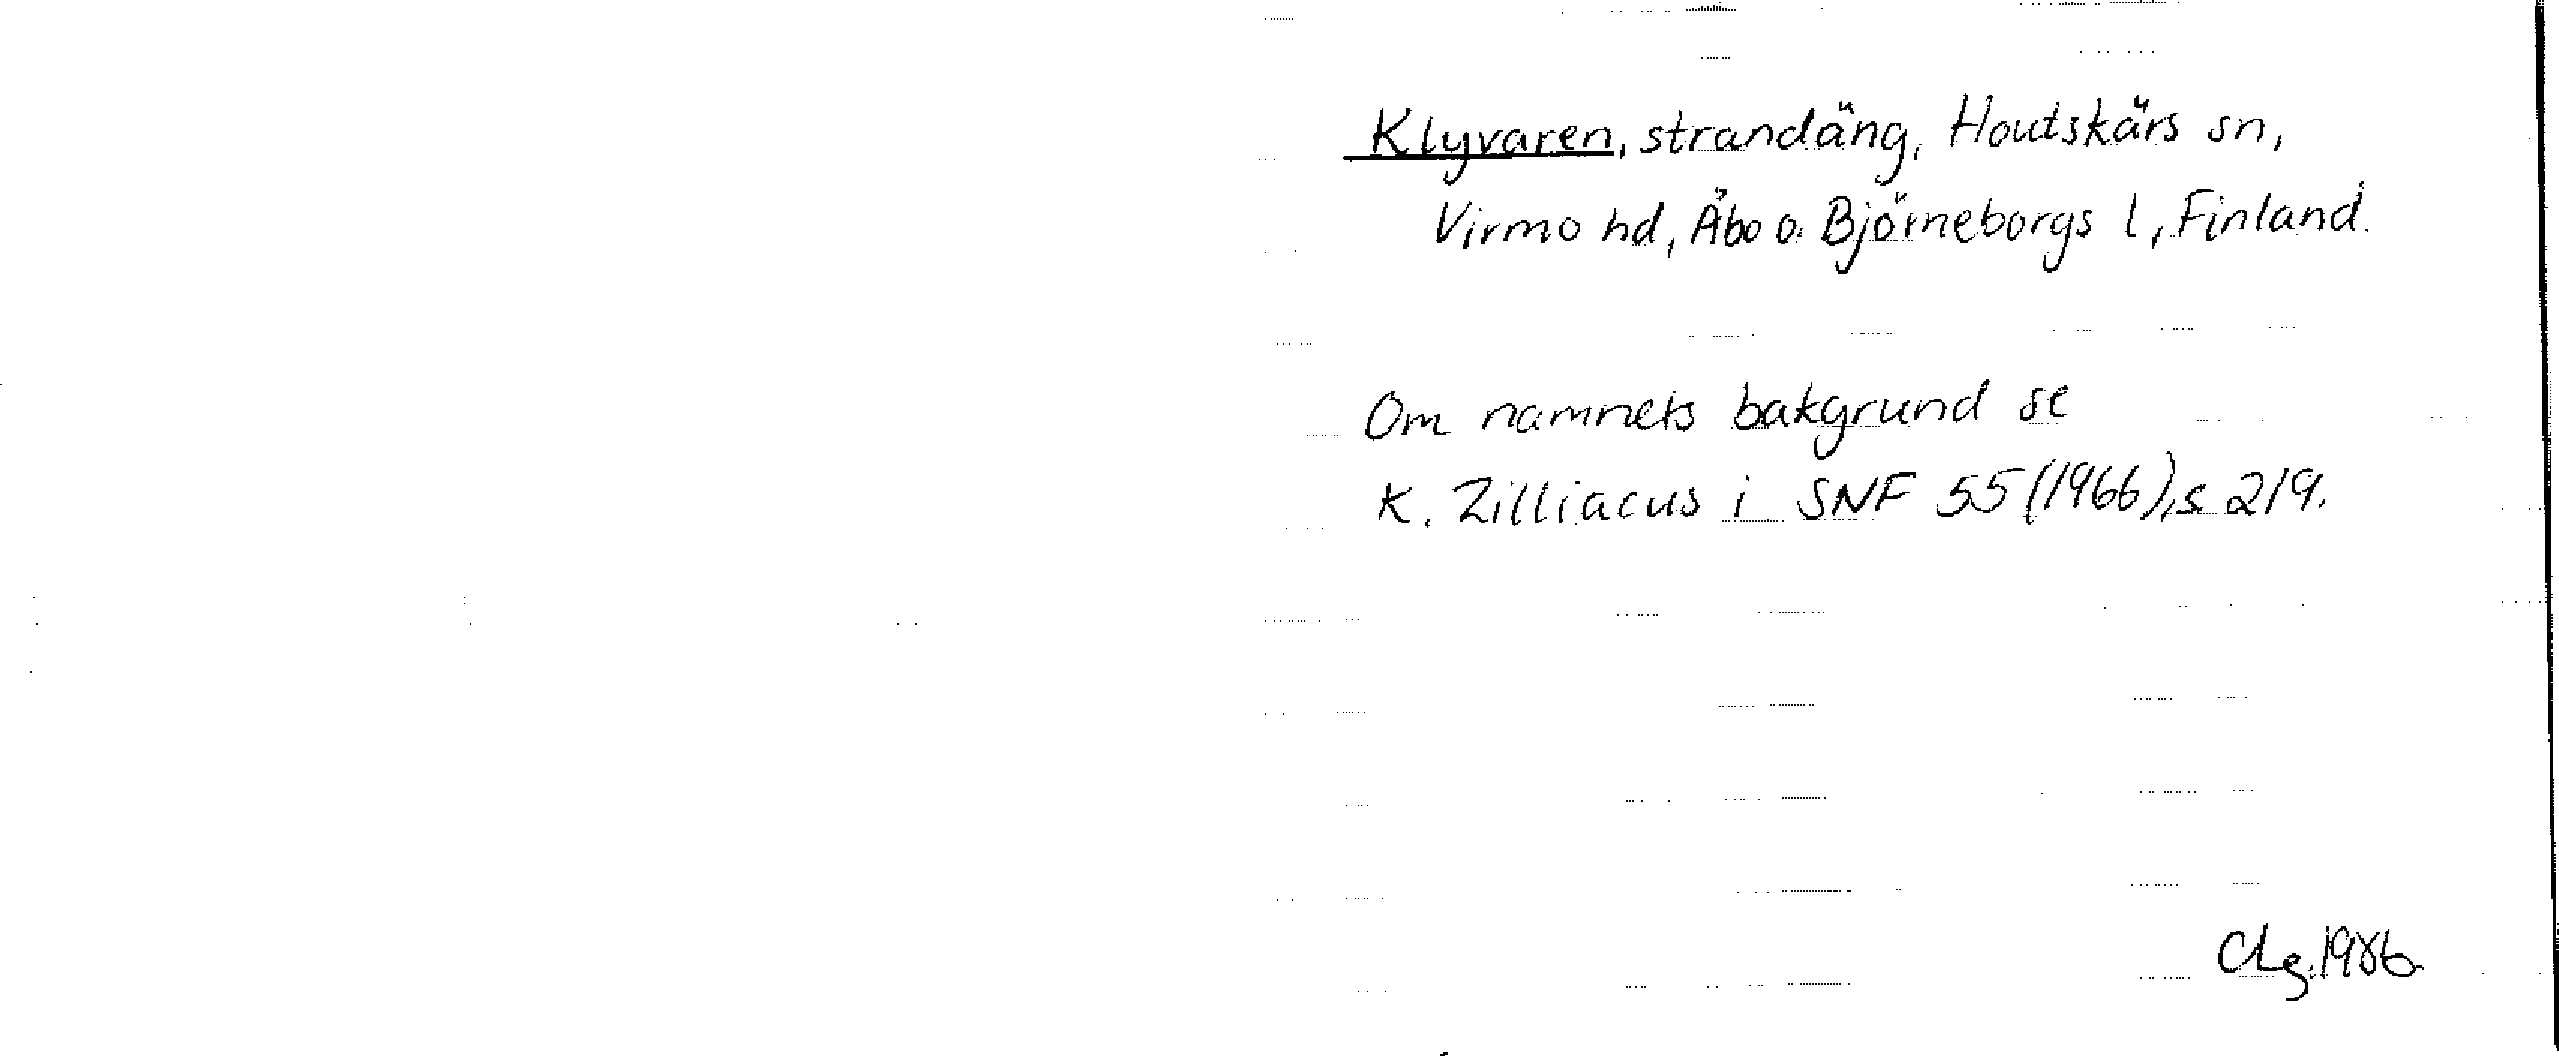 Klyvaren, strandäng, Houtskärs sn,
Virmo hd, Åbo o. Björneborgs l, Finland.
Om namnets bakgrund se
K. Zilliacus i SNF 55 (1966), s 219.
1986